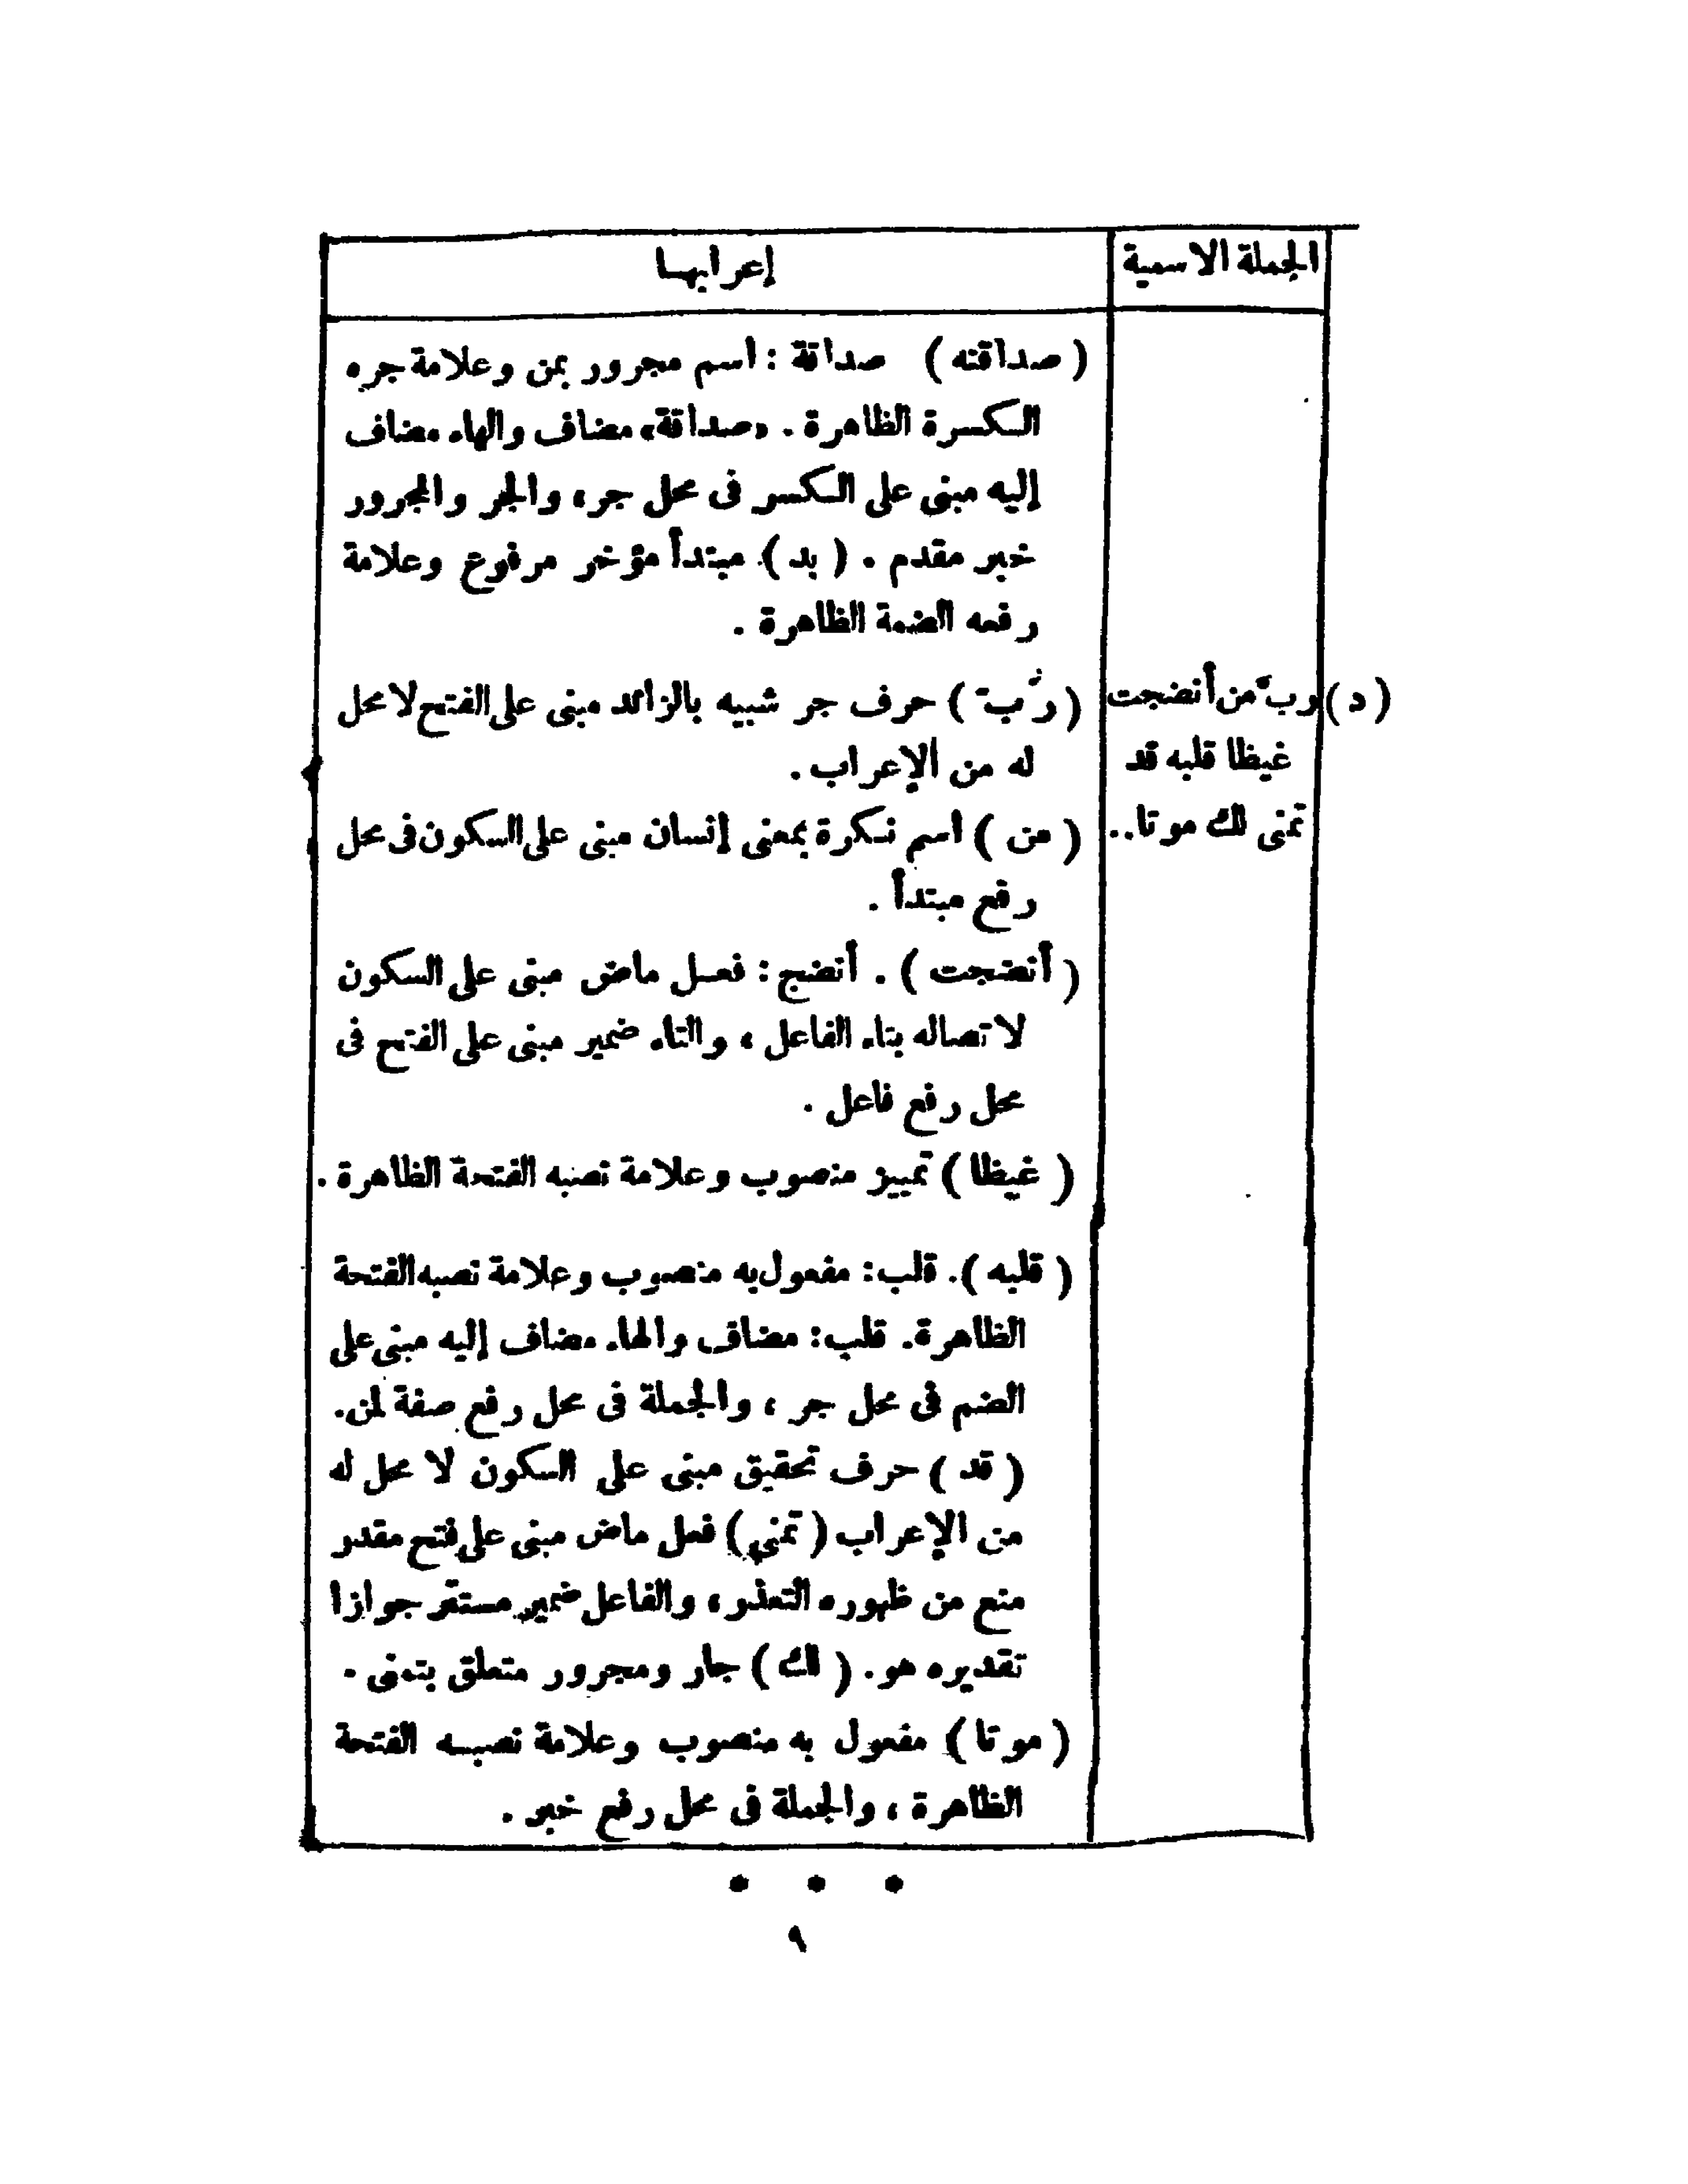 الجملة الاسمية
إعرابهـا
( صداقته ) صداقة : اسم مجرور بمن وعلامة جره
الكسرة الظاهرة . «صداقة» مضاف والهاء مضاف
إليه مبنى على الكسر فى محل جر، والجر والمجرور
خبر مقدم . ( بد ) مبتدأ مؤخر مرفوع وعلامة
رفعه الضمة الظاهرة .
( د ) ربّ من أنضجت
غيظا قلبه قد
تمنى لك موتا..
( رُبّ ) حرف جر شبيه بالزائد مبنى على الفتح لا محل
له من الإعراب .
( من ) اسم نكرة بمعنى إنسان مبنى على السكون فى محل
رفع مبتدأ .
( أنضجت ) . أنضج : فعـل ماض مبنى على السكون
لاتصاله بتاء الفاعل ، والتاء ضمير مبنى على الفتح فى
محل رفع فاعل .
( غيظا ) تمييز منصوب وعلامة نصبه الفتحة الظاهرة .
( قلبه ). قلب: مفعول به منصوب وعلامة نصبه الفتحة
الظاهرة. قلب: مضاف والهاء مضاف إليه مبنى على
الضم فى محل جر ، والجملة فى محل رفع صفة لمن.
( قد ) حرف تحقيق مبنى على السكون لا محل له
من الإعراب ( تمنى ) فعل ماض مبنى على فتح مقدر
منع من ظهوره التعذر، والفاعل ضمير مستتر جوازا
تقديره هو. ( لك ) جار ومجرور متعلق بتمنى .
( موتا ) مفعول به منصوب وعلامة نصبـه الفتحة
الظاهرة ، والجملة فى محل رفع خبر .
* * *
٩